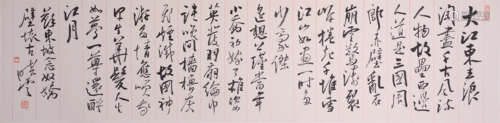 大江東去浪
淘盡千古風流
人物故壘西邊
人道是三國周
郎赤壁亂石
崩雲驚濤裂
岸捲起千堆雪
江山如畫一時多
少豪傑
遙想公瑾當年
小喬初嫁了雄姿
英發羽扇綸巾
談笑間檣櫓灰
飛煙滅故國神
遊多情應笑我
早生華髮人生
如夢一尊還酹
江月
蘇東坡念奴嬌
壁懷古